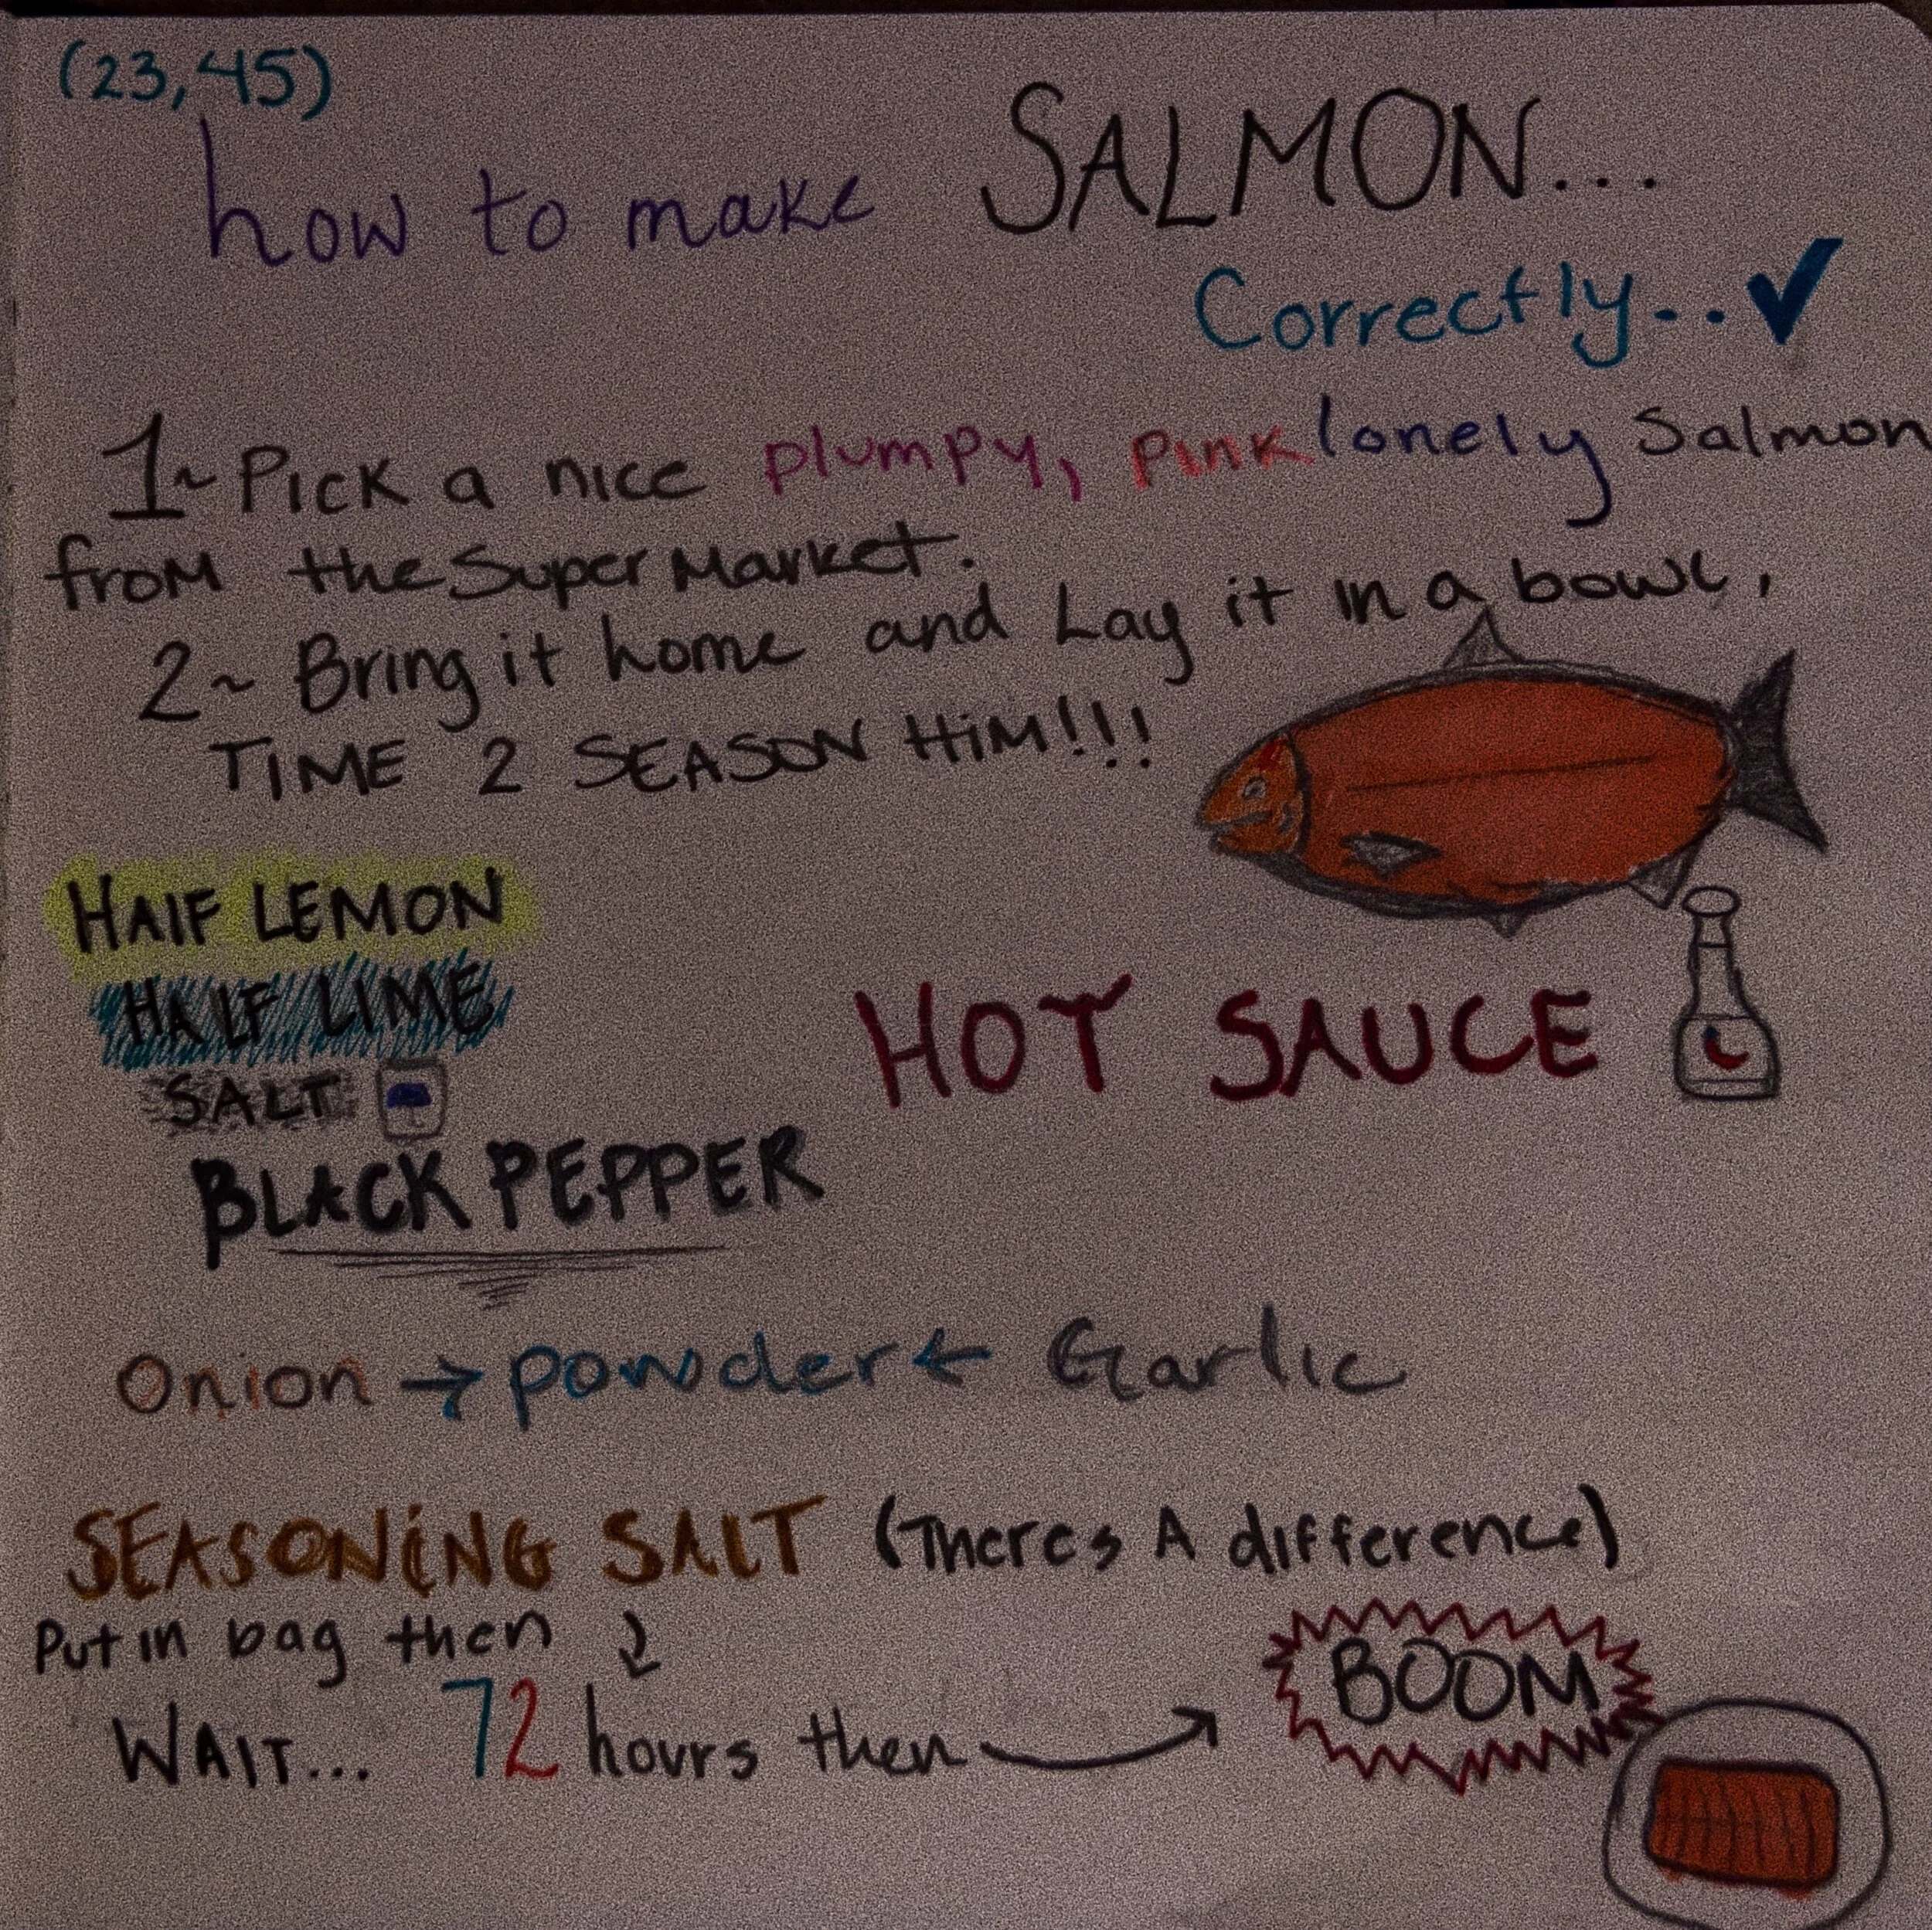 (23,45)
how to make SALMON...
Correctly.. ✓
1~ Pick a nice plumpy, pink lonely Salmon
from the Super Market.
2~ Bring it home and Lay it in a bowl,
TIME 2 SEASON HiM!!!
HAlF LEMON
HALF LIME
SALT
HOT SAUCE
BLACK PEPPER
Onion → powder ← Garlic
SEASONiNG SAlT (Theres A difference)
Put in bag then
WAIT... 72 hours then
BOOM